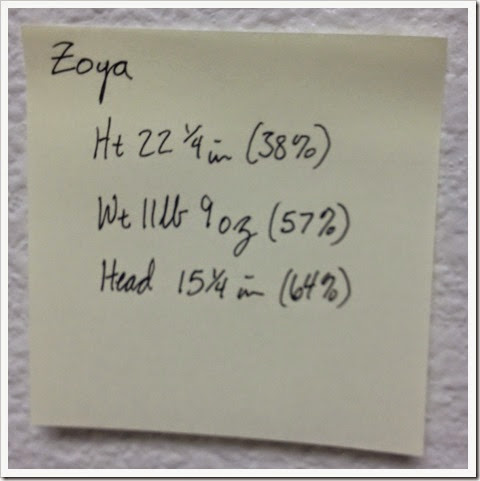 Zoya
Ht 22 1/4 in (38%)
Wt 11lb 9oz (57%)
Head 15 1/4 in (64%)